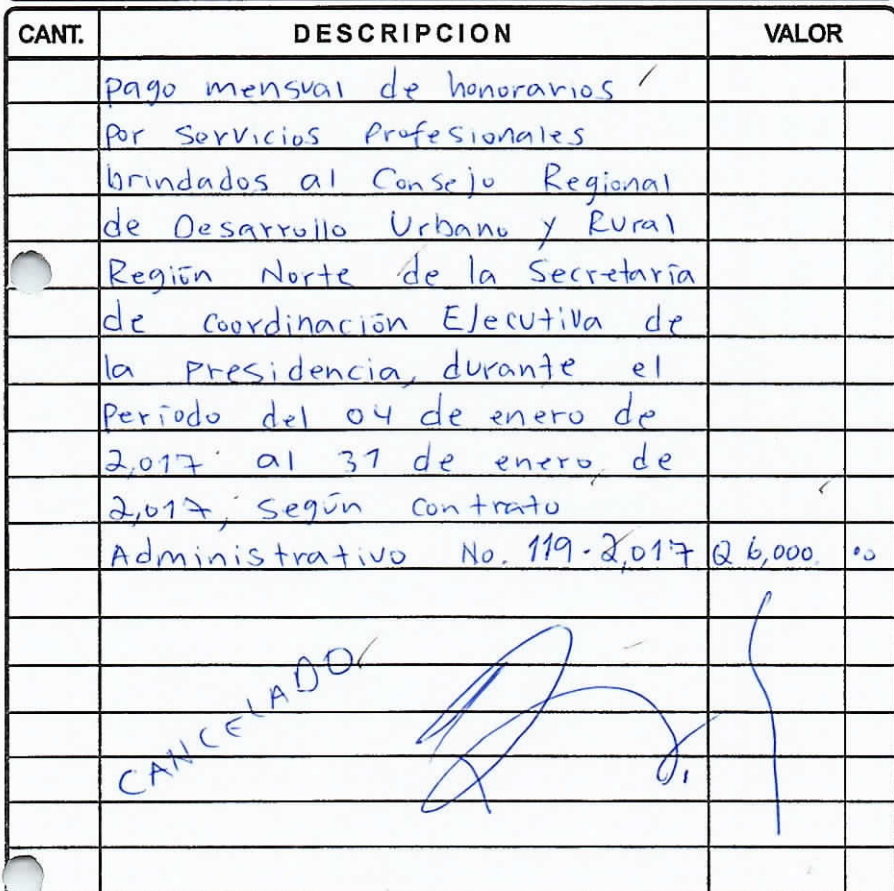 CANT. DESCRIPCION VALOR
pago mensual de honorarios
por servicios Profesionales
brindados al Consejo Regional
de Desarrollo Urbano y Rural
Región Norte de la Secretaría
de Coordinación Ejecutiva de
la Presidencia, durante el
Período del 04 de enero de
2,017 al 31 de enero de
2,017, según contrato
Administrativo No. 119-2,017 Q 6,000.00
CANCELADO